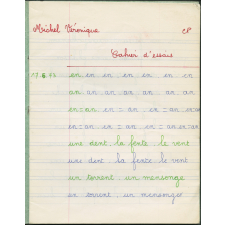 Michel Véronique CP
Cahier d'essais
en en en en en en en
an an an an an an an
en = an en = an en = an
en = an en = an = an en = an
une dent la fente le vent
une dent la fente le vent
un torrent un mensonge
un torrent un mensonge